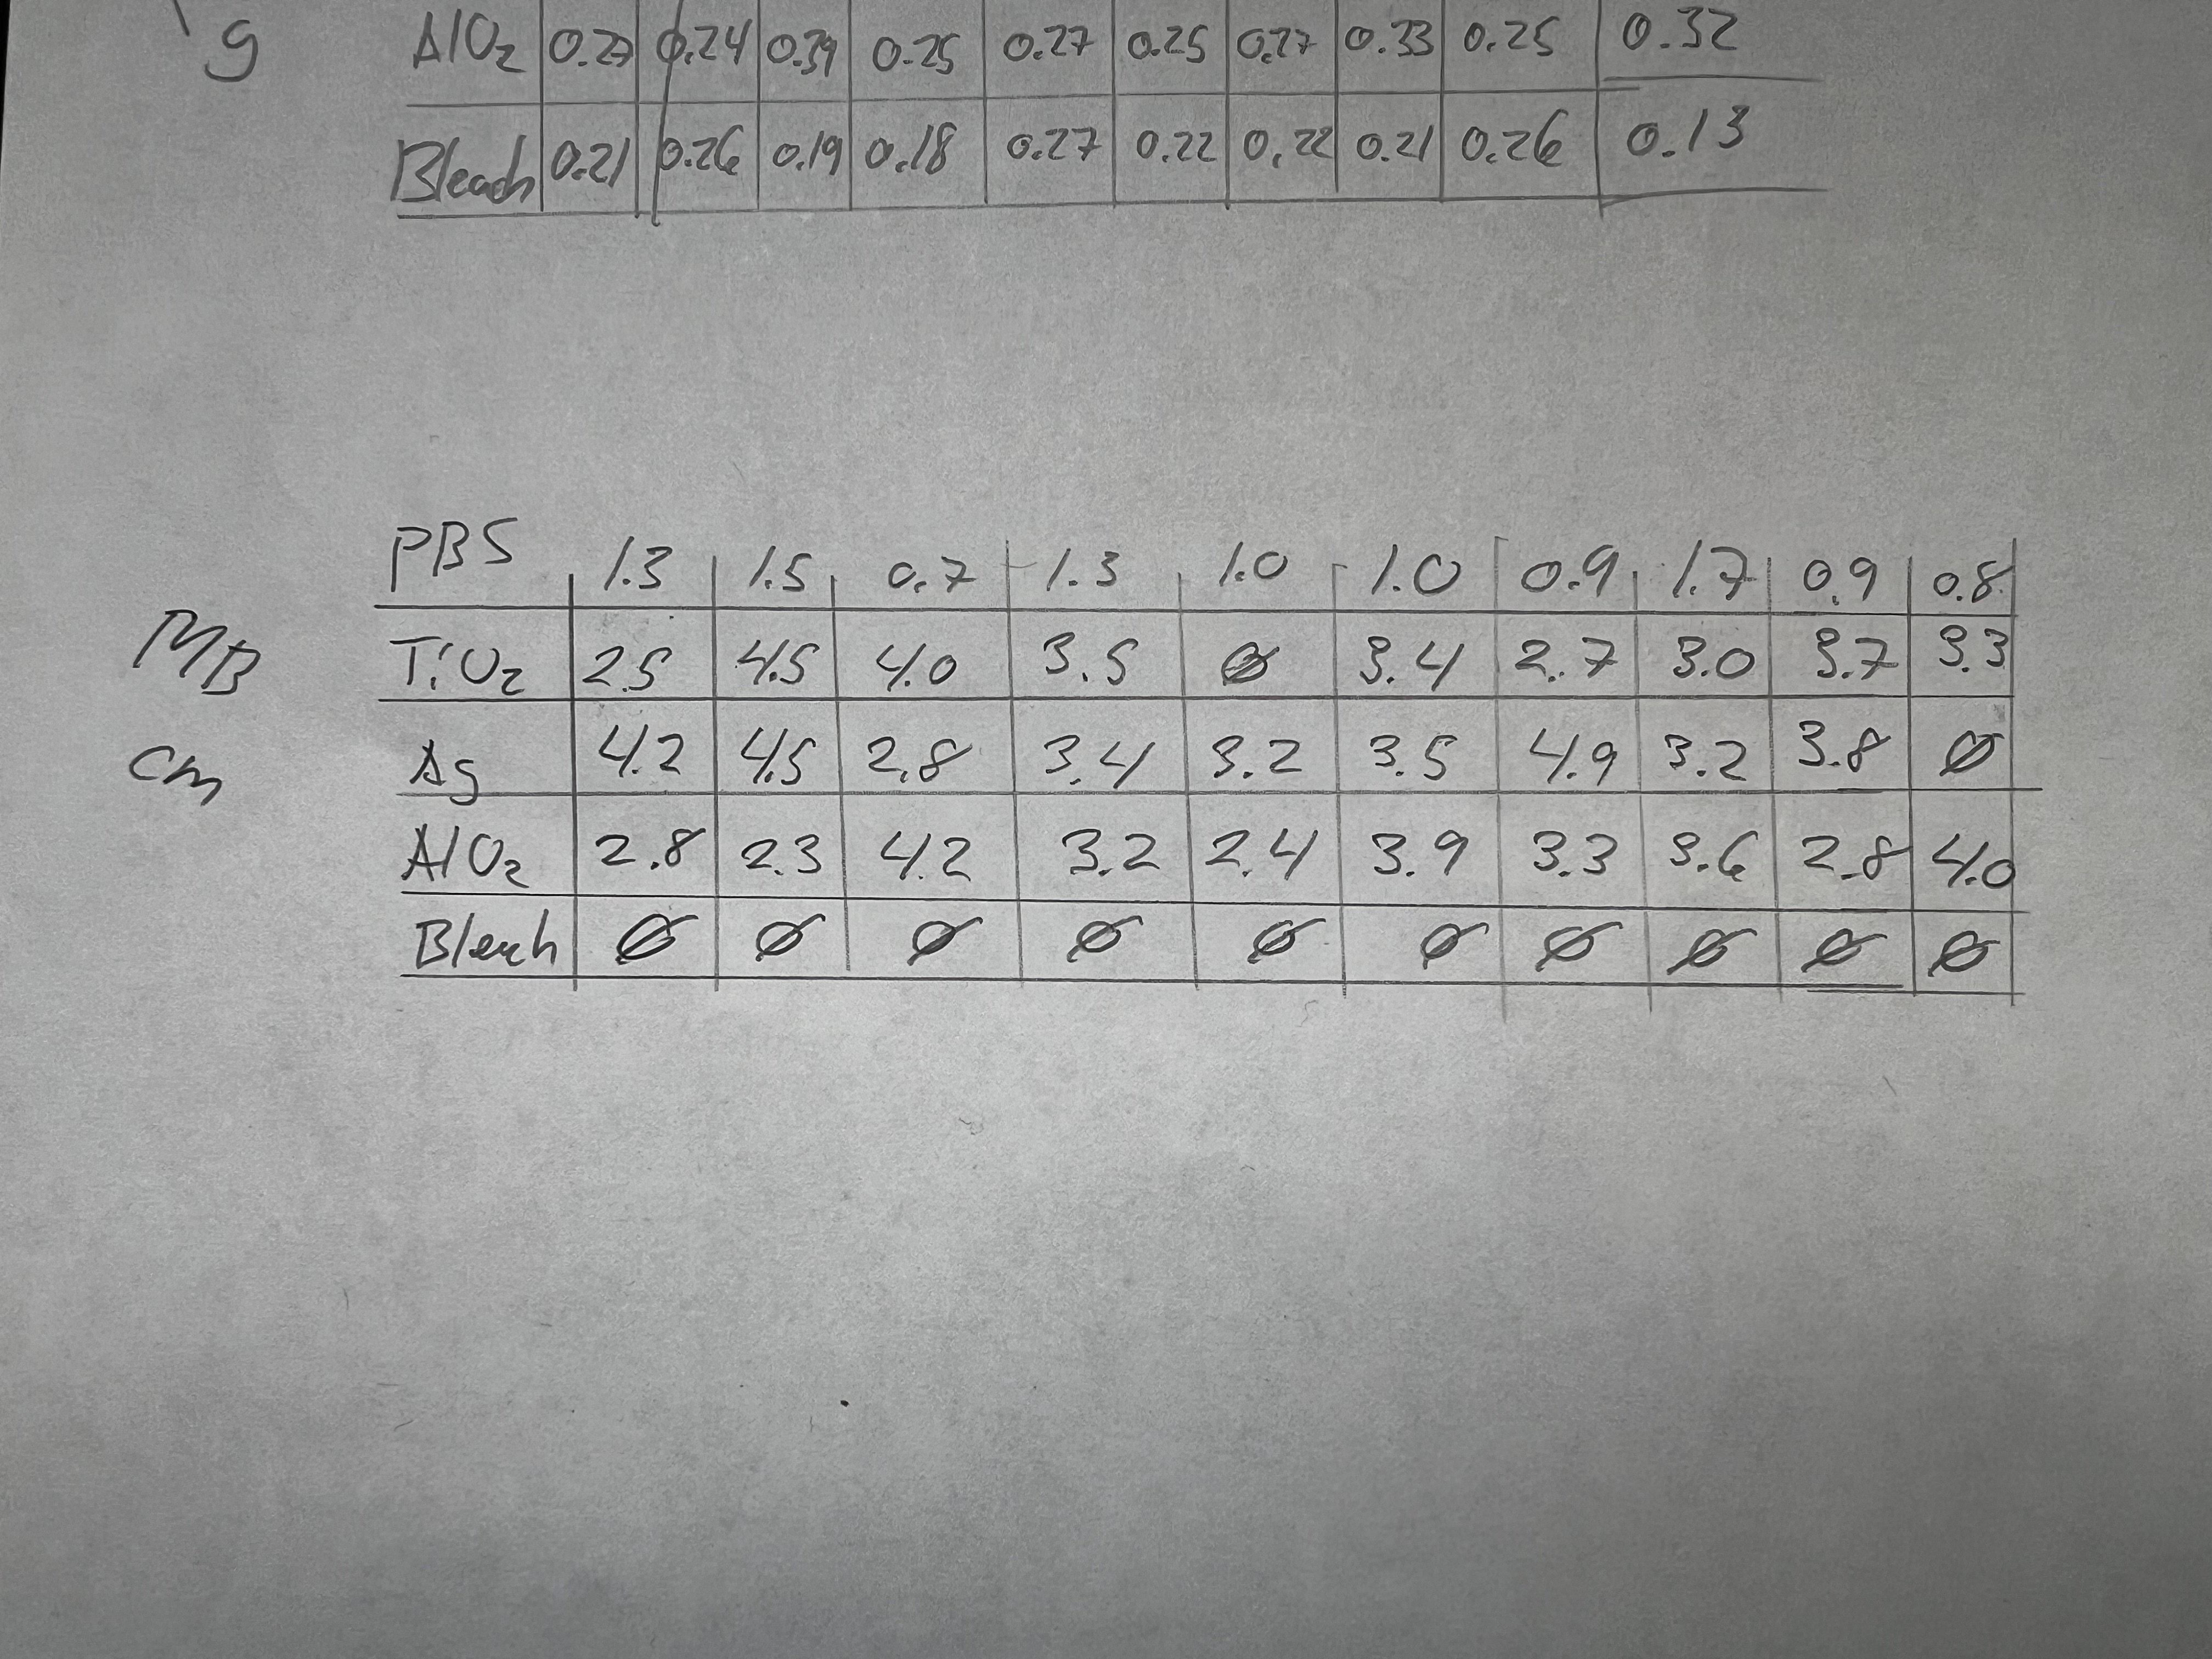 g
AlO2 0.27 0.24 0.34 0.25 0.27 0.25 0.27 0.33 0.25 0.32
Bleach 0.21 0.26 0.19 0.18 0.27 0.22 0.22 0.21 0.26 0.13
MB
cm
PBS 1.3 1.5 0.7 1.3 1.0 1.0 0.9 1.7 0.9 0.8
TiO2 2.5 4.5 4.0 3.5 Ø 3.4 2.7 3.0 3.7 3.3
Ag 4.2 4.5 2.8 3.4 3.2 3.5 4.9 3.2 3.8 Ø
AlO2 2.8 2.3 4.2 3.2 2.4 3.9 3.3 3.6 2.8 4.0
Bleach Ø Ø Ø Ø Ø Ø Ø Ø Ø Ø